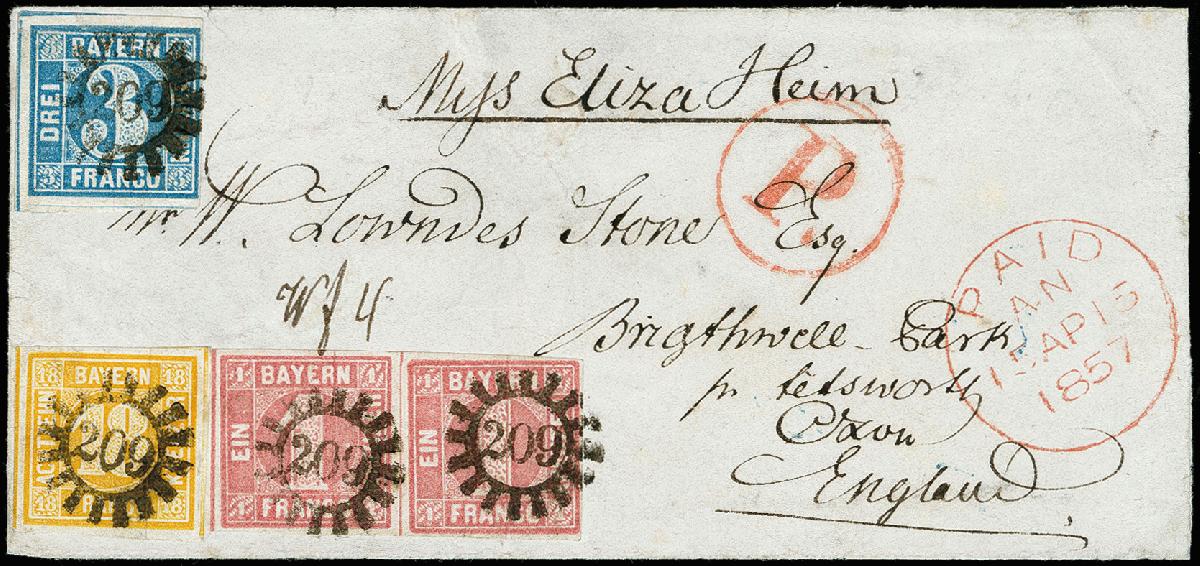 BAYERN
DREI 3
FRANCO
3 3
209
Miss Eliza Heim
P.
W. Lowndes Stone Esq.
Wf 4
Brigthwell Park
pr tetsworth
Oxon
England
PAID
15 AP 15
1857
18 BAYERN 18
ACHTZEHN
18 18
209
1 BAYERN 1
EIN
1 FRANCO 1
209
1 BAYERN
EIN
1 FRANCO
209